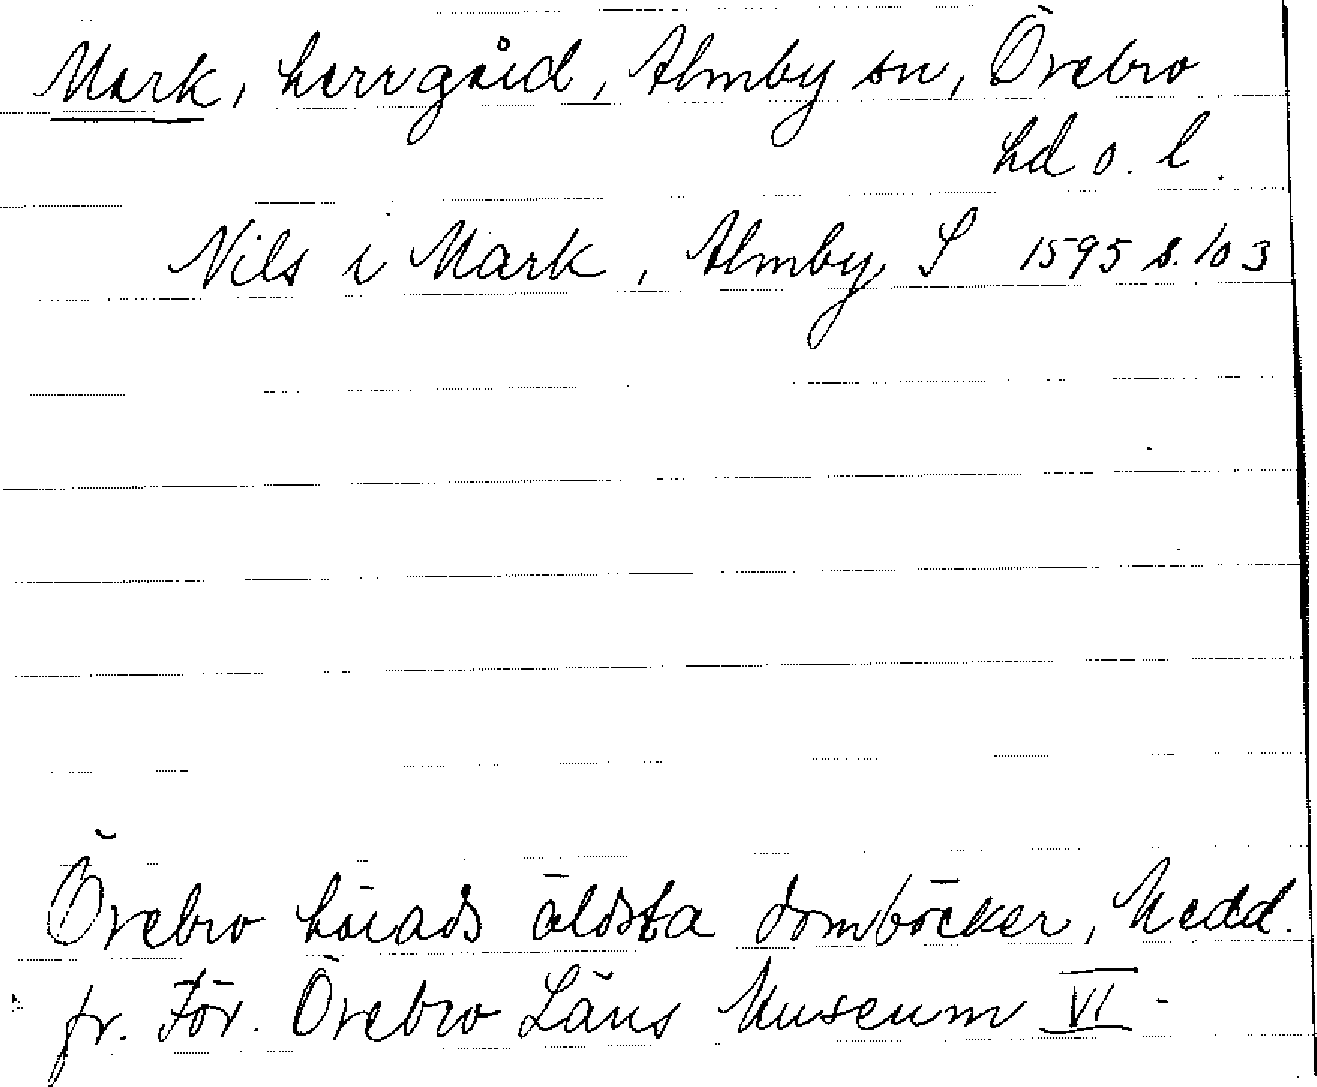 Mark, herrgård, Almby sn, Örebro
hd o. l.
Nils i Mark, Almby, S 1595 s. 103
Örebro härads äldsta domböcker, Medd.
fr. För. Örebro Läns Museum VI